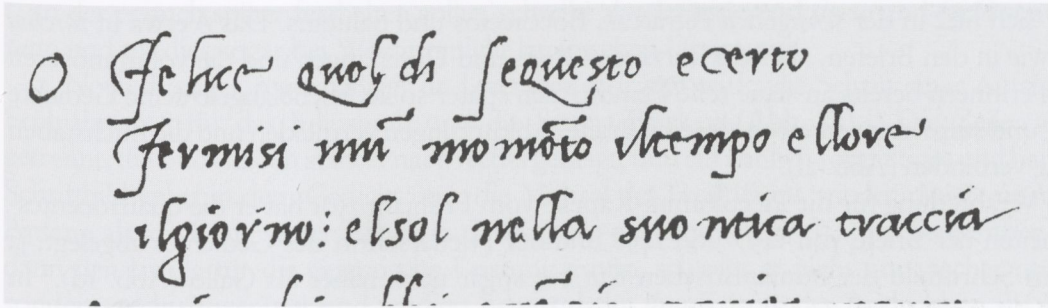 O felice quel di se questo e certo
fermisi i mū momēto il tempo e llore
ilgiorno: el sol nella suo ntica traccia